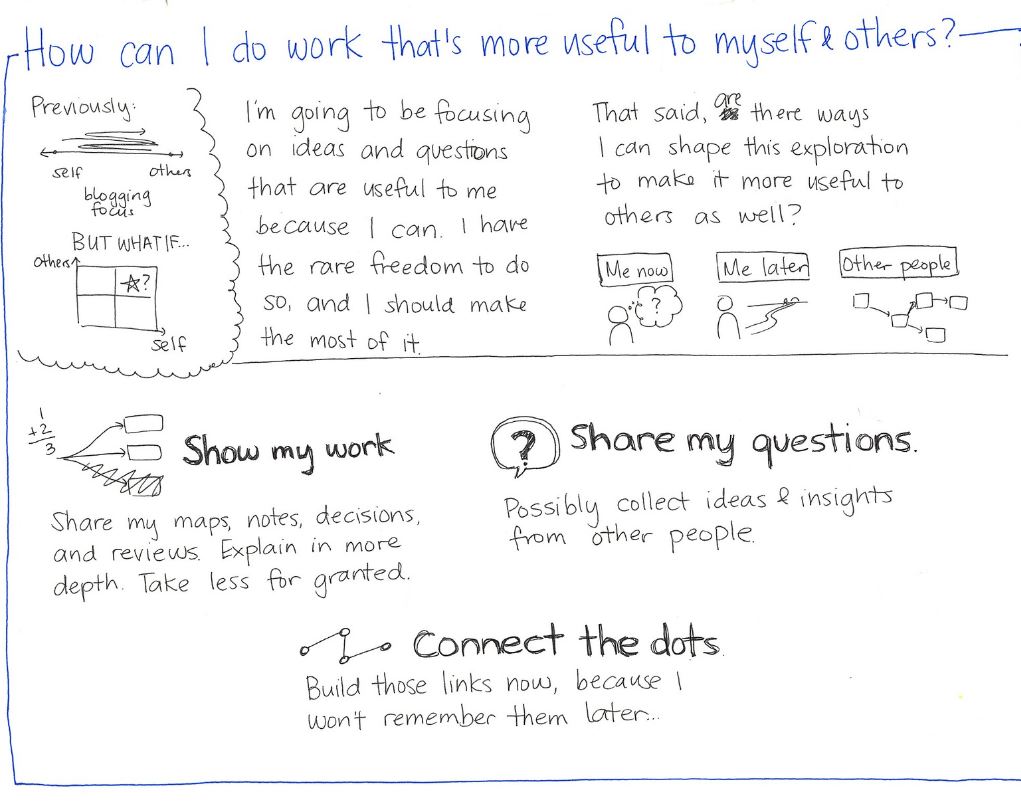 How can I do work that's more useful to myself & others?
Previously:
self others
blogging
focus
BUT WHAT IF...
others
?
self
I'm going to be focusing
on ideas and questions
that are useful to me
because I can. I have
the rare freedom to do
so, and I should make
the most of it.
That said, are there ways
I can shape this exploration
to make it more useful to
others as well?
Me now
?
Me later
Other people
1
+2
3
Show my work
Share my maps, notes, decisions,
and reviews. Explain in more
depth. Take less for granted.
?
Share my questions.
Possibly collect ideas & insights
from other people.
Connect the dots.
Build those links now, because I
won't remember them later...